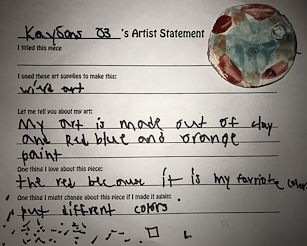 Kaydons 's Artist Statement
I titled this piece
I used these art supplies to make this:
wire art
Let me tell you about my art:
My art is made out of clay
and Red blue and orange
paint
One thing I love about this piece:
the red because it is my favriote color
One thing I might change about this piece if I made it again:
put different colors